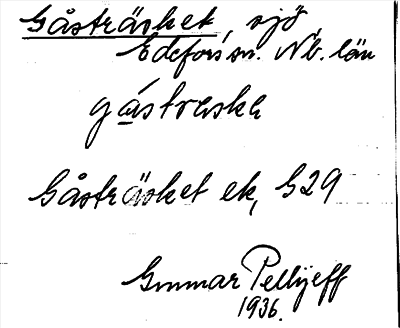 Gåsträsket sjö
Edefors sn. Nb. län
gåstrask
Gåsträsket ek, G29
Gunnar Pellijeff
1936.